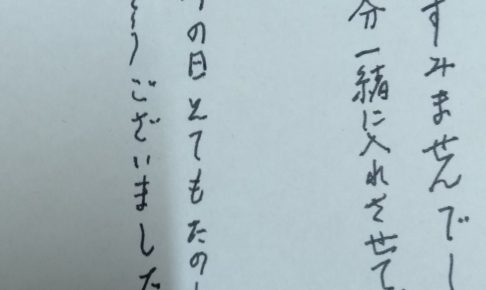 すみませんでし
分一緒に入れさせて
の日とてもたのし
うございました